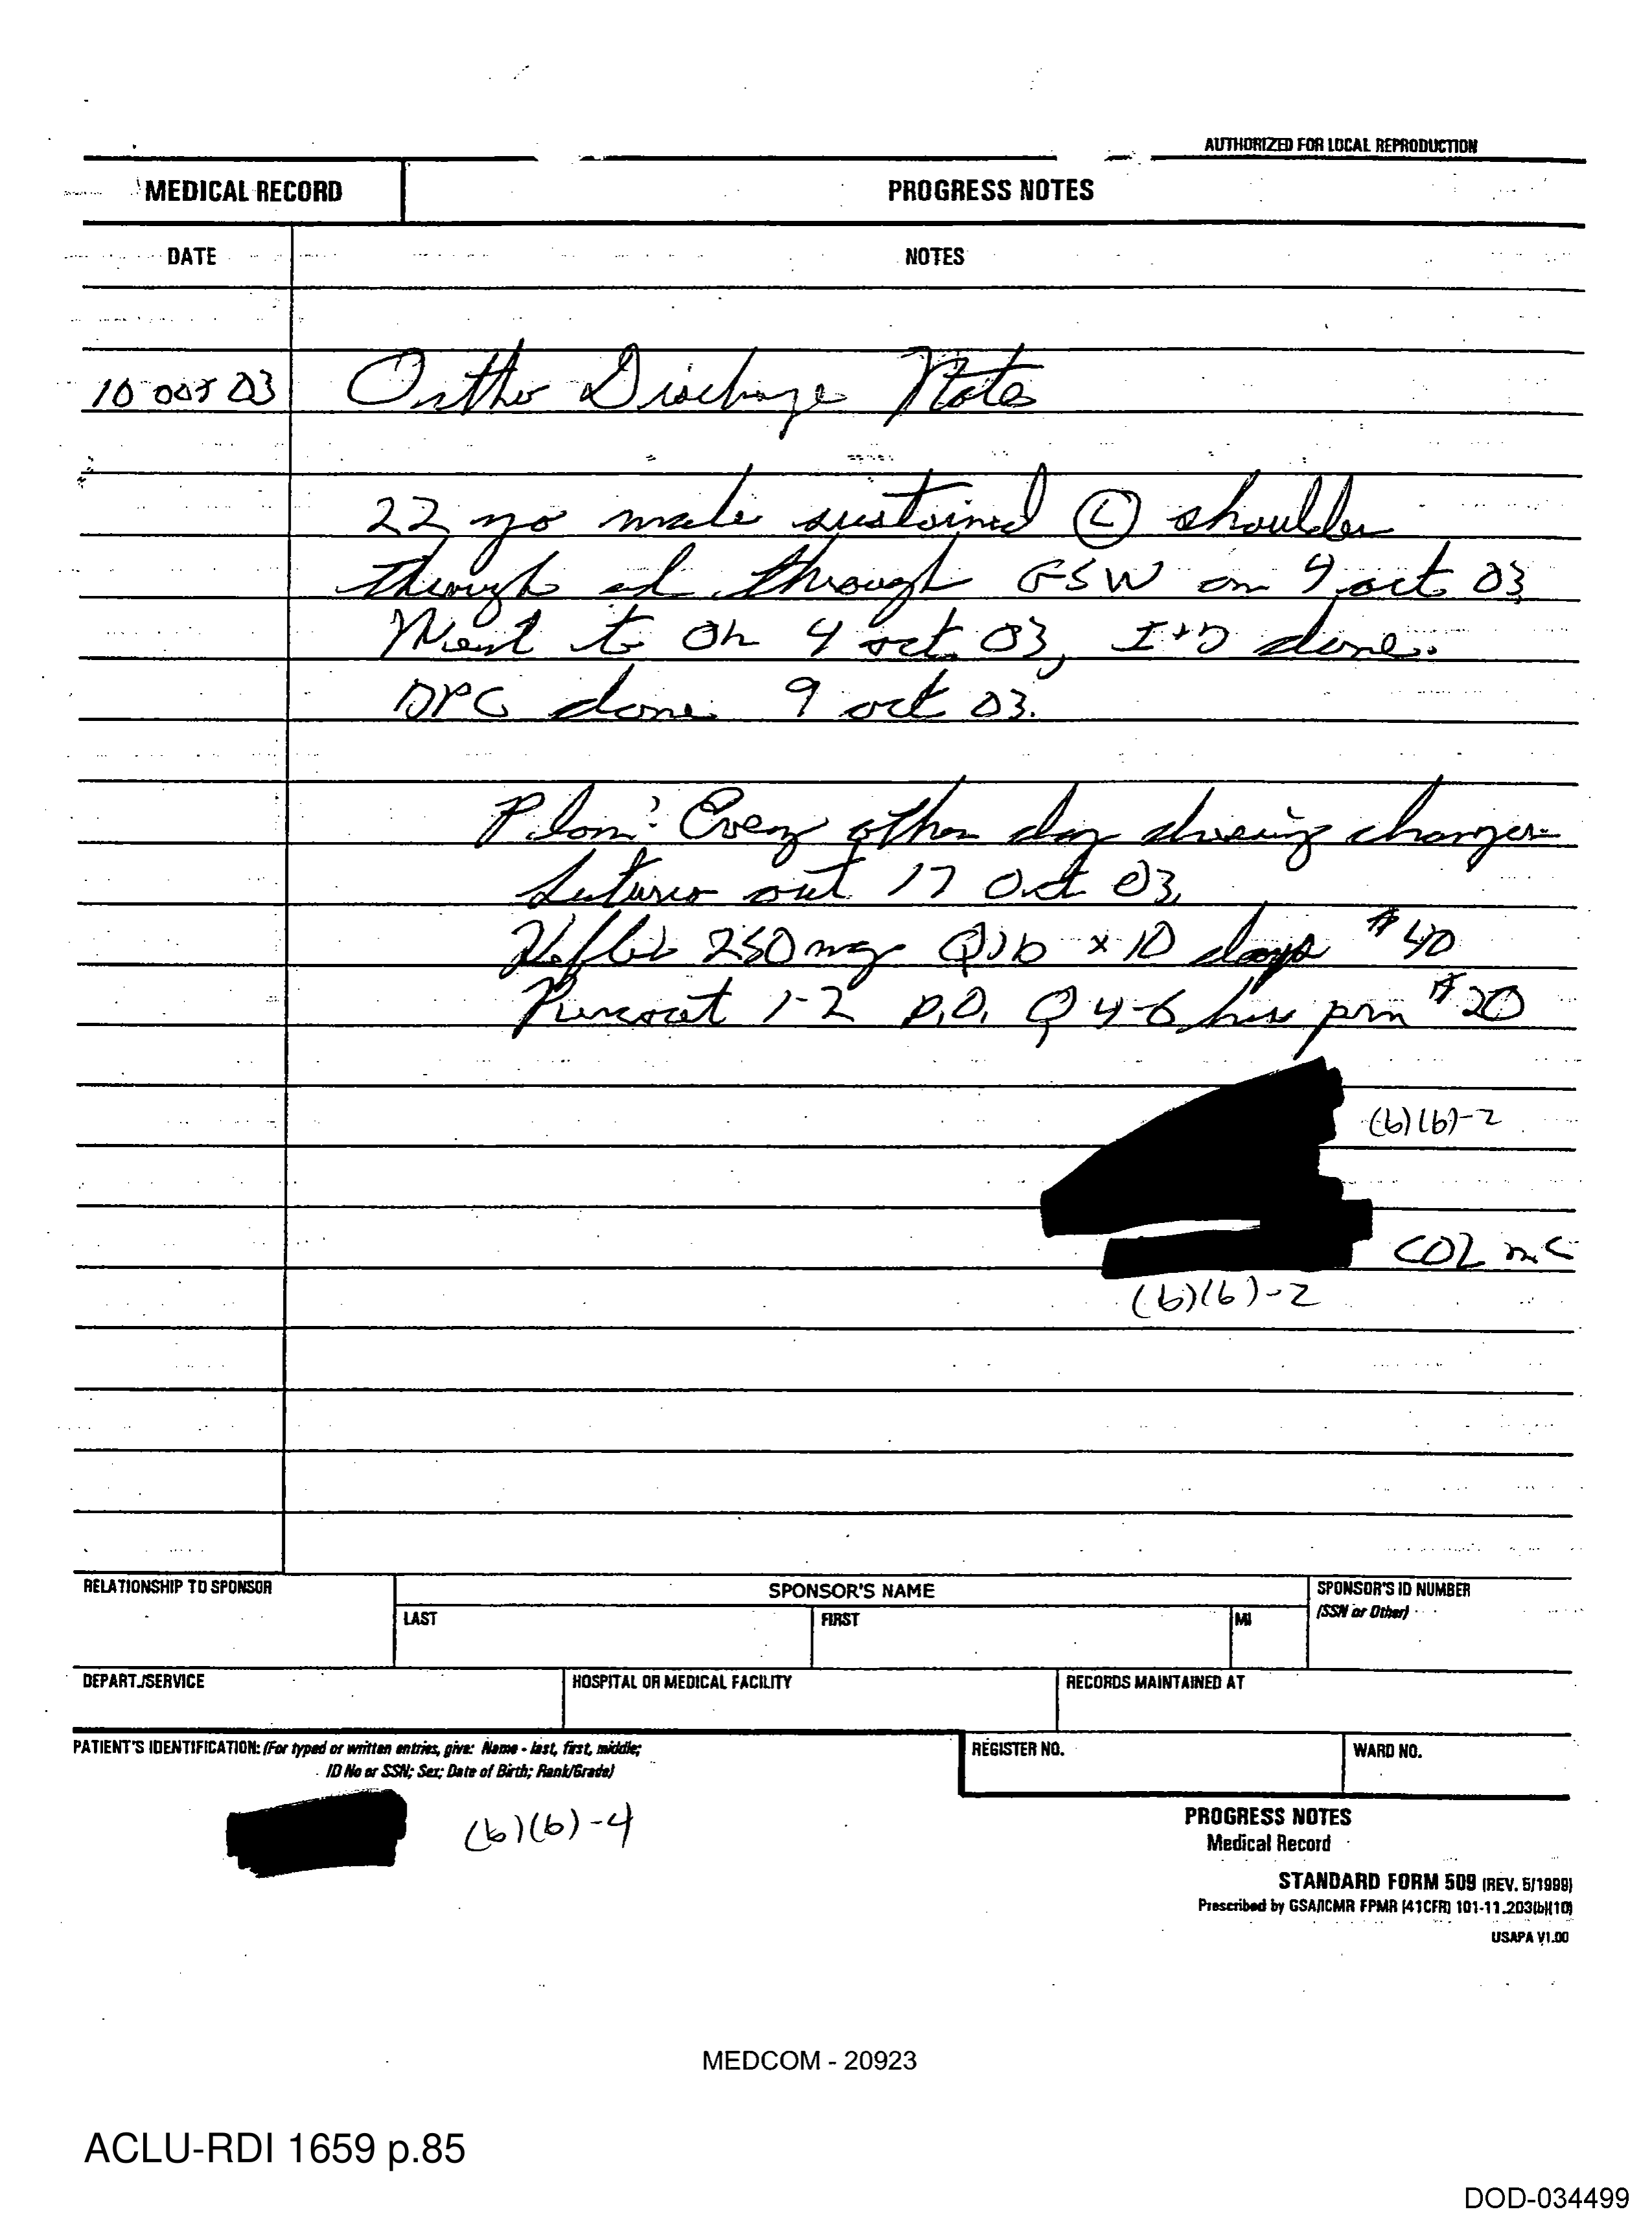 AUTHORIZED FOR LOCAL REPRODUCTION
MEDICAL RECORD
PROGRESS NOTES
DATE
NOTES
10 oct 03
Ortho Discharge Note
22 yo male sustained Ⓛ shoulder
through and through GSW on 4 oct 03
Went to OR 4 oct 03, I+D done.
DPC done 9 oct 03.
Plan: Every other day dressing changes
Sutures out 17 Oct 03,
Keflex 250 mg QID x 10 days #40
Percocet 1-2 p.o. Q 4-6 hrs prn #20
(b)(6)-2
COL MC
(b)(6)-2
RELATIONSHIP TO SPONSOR
SPONSOR'S NAME
SPONSOR'S ID NUMBER
(SSN or Other)
LAST
FIRST
MI
DEPART./SERVICE
HOSPITAL OR MEDICAL FACILITY
RECORDS MAINTAINED AT
PATIENT'S IDENTIFICATION: (For typed or written entries, give: Name - last, first, middle;
ID No or SSN; Sex; Date of Birth; Rank/Grade)
REGISTER NO.
WARD NO.
(b)(6)-4
PROGRESS NOTES
Medical Record
STANDARD FORM 509 (REV. 5/1999)
Prescribed by GSA/ICMR FPMR (41CFR) 101-11.203(b)(10)
USAPA V1.00
MEDCOM - 20923
ACLU-RDI 1659 p.85
DOD-034499